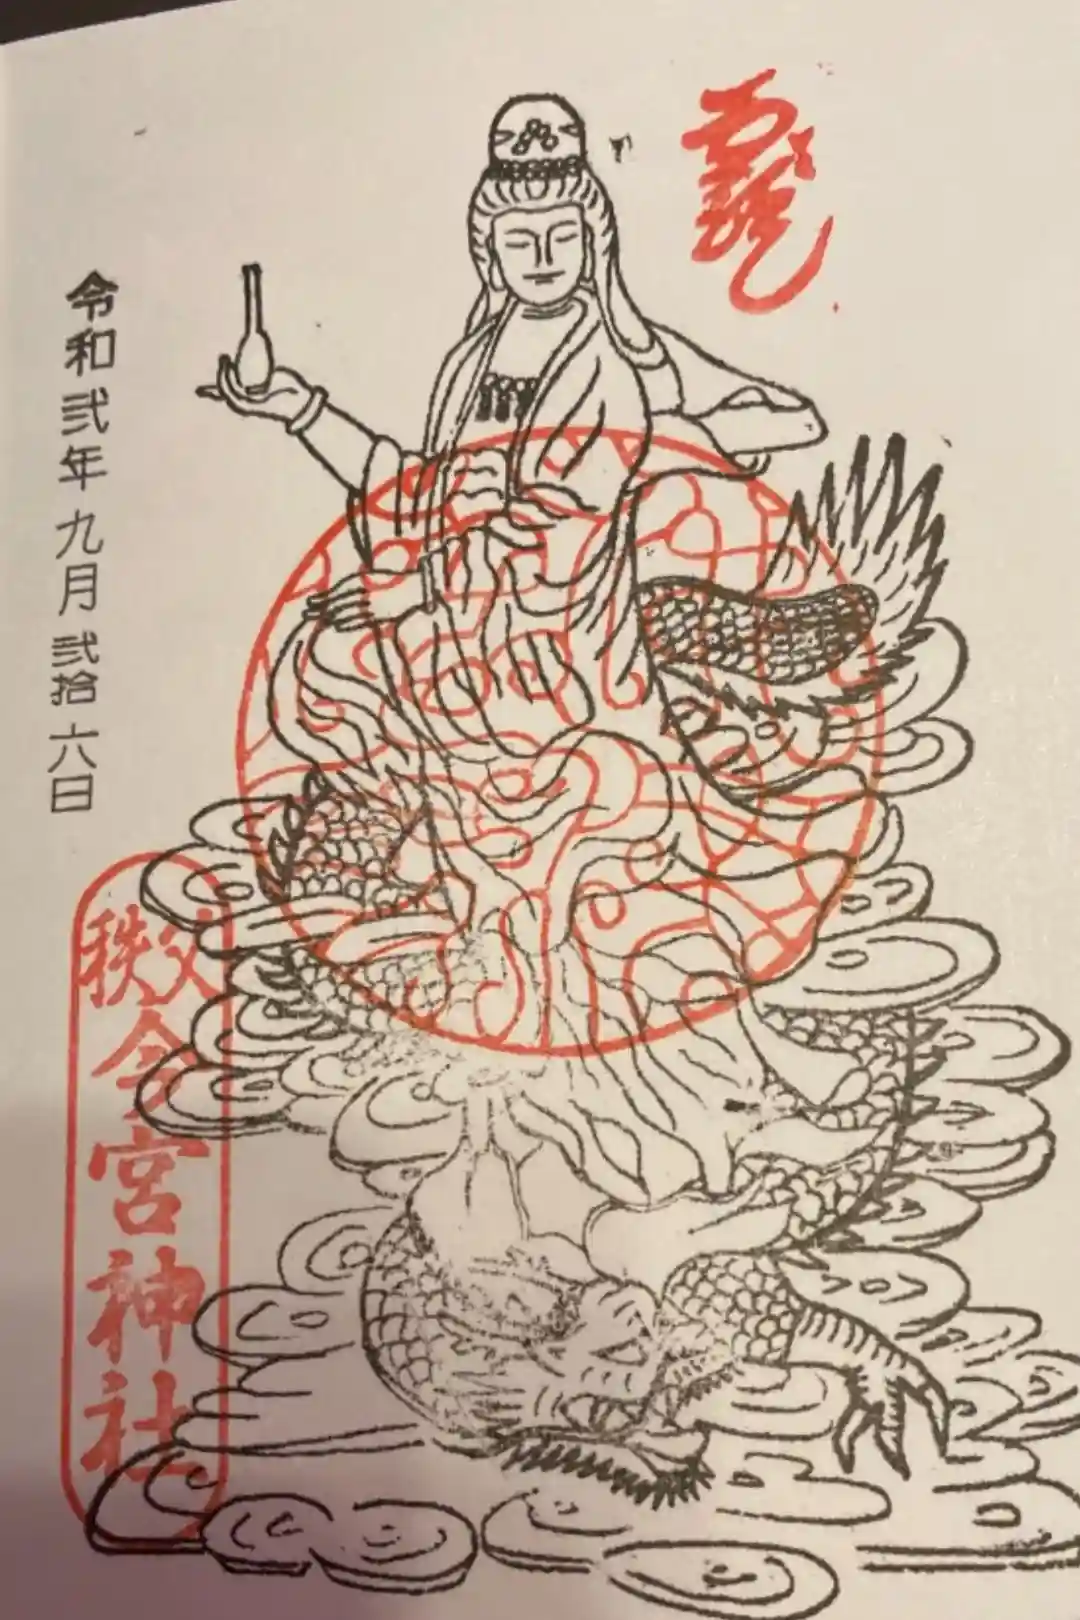 龍
令和弐年九月弐拾六日
秩父
今宮神社